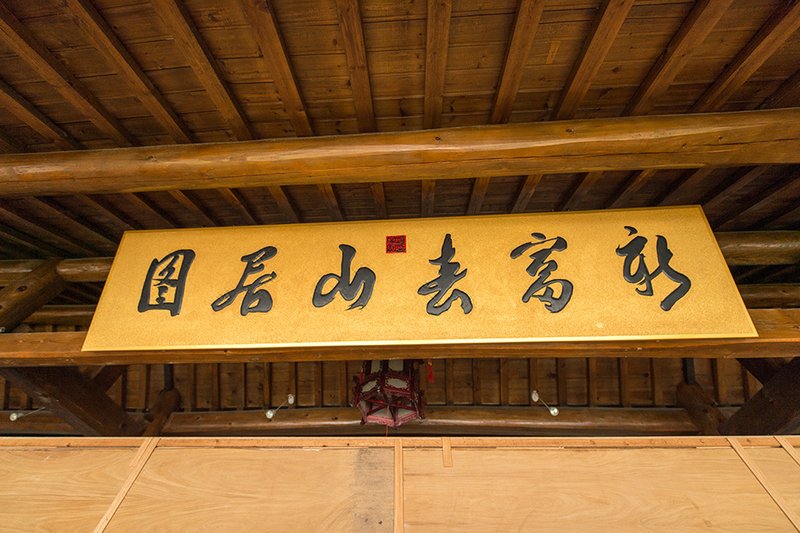 新富春山居图